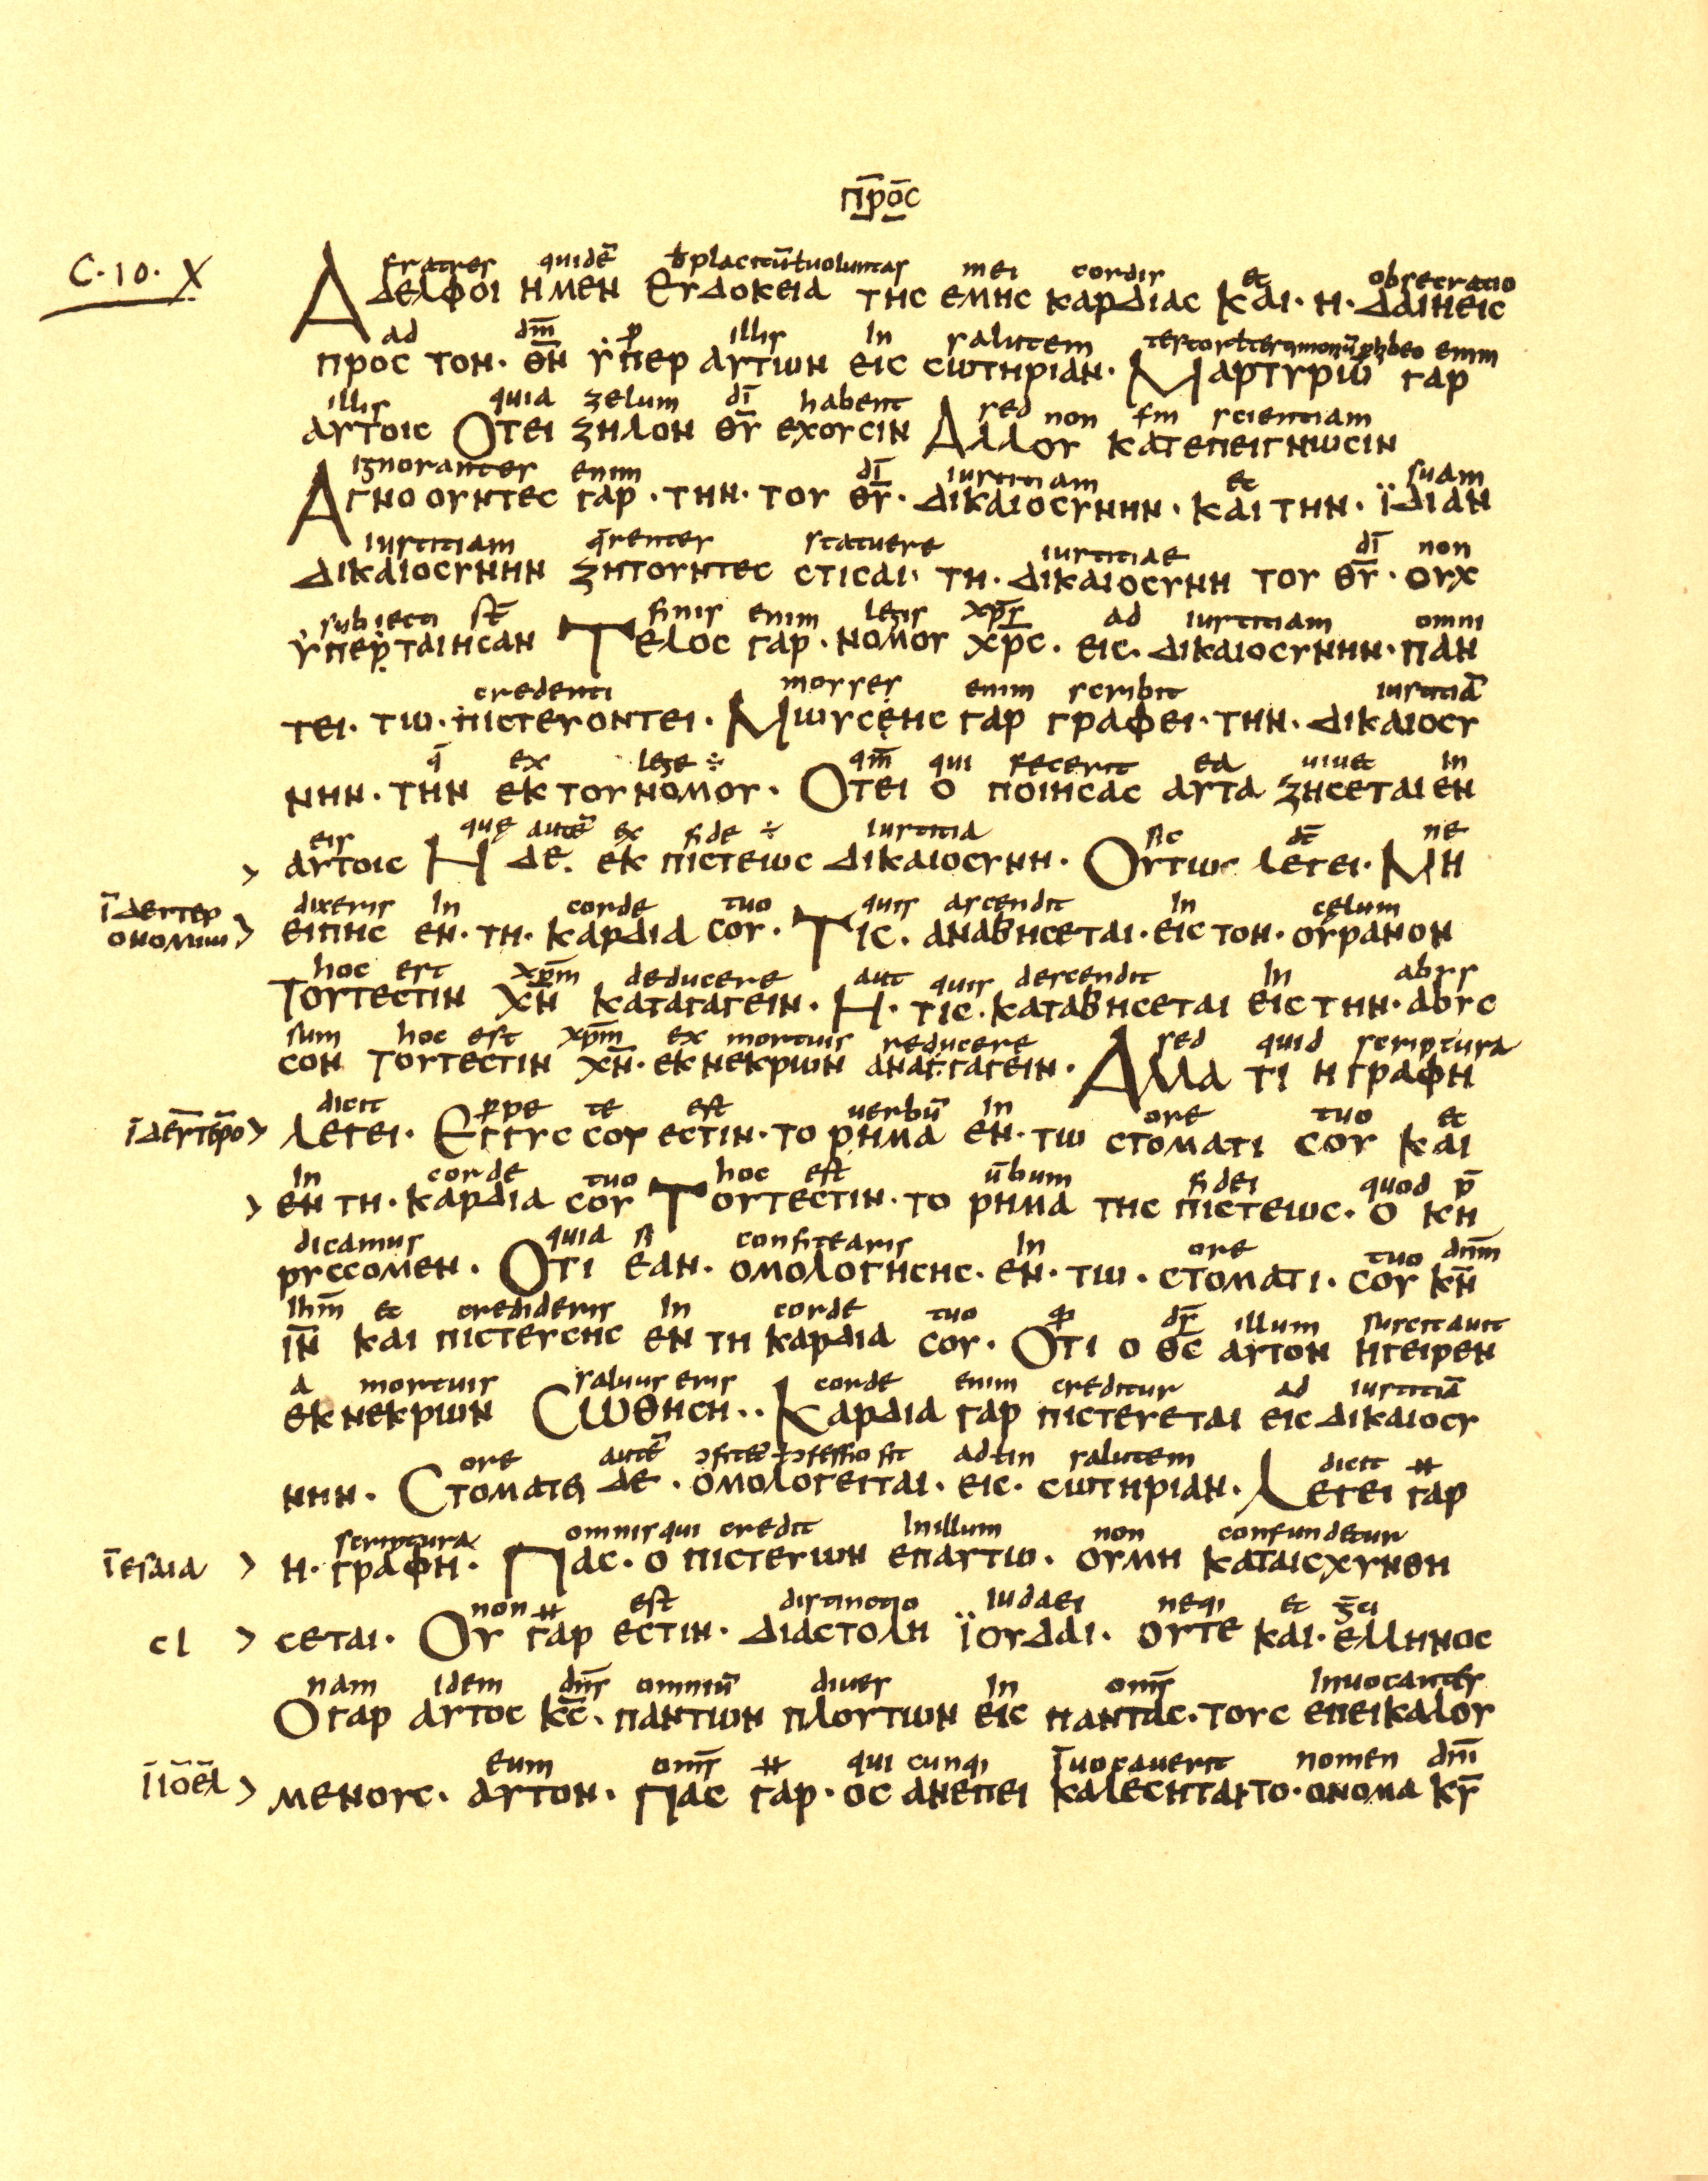 π̅ρο̅ς
C·10· X
fratres quidē ł placitū ł uoluntas mei cordis et obsecratio
Αδελφοι ημεν Ευδοκεια της εμης καρδιας και· η· δαιηεις
ad dm̅ p illis In salutem testor enim
προς τον· θ̅ν̅ υπερ αυτων εις σωτηριαν· Μαρτυριω γαρ
illis quia zelum di̅ habent sed non sm scientiam
αυτοις Οτει ζηλον θ̅υ̅ εχουσιν Αλλου κατεπειγνωσιν
ignoranter enim di̅ iustitiam et suam
Αγνοουντες γαρ· την· του θ̅υ̅· δικαιοσυνην· και την· ϊδιαν
iustitiam q̅renter statuere iustitiae di̅ non
δικαιοσυνην ζητουντες στισαι· τη· δικαιοσυνη του θ̅υ̅· ουχ
subiecti st̅ finis enim legis xp̅s ad iustitiam omni
υπερταιησαν Τελος γαρ· νομου χρς· εις· δικαιοσυνην· παν
credenti moyses enim scribit iustitiā
τει· τω· πιστευοντει· Μωυσεης γαρ γραφει· την· δικαιοσυ
q̅ ex lege ÷ qm̅ qui fecerit ea uiuet In
νην· την εκ του νομου· Οτει ο ποιησας αυτα ζησεται εν
eis quę autē ex fide ÷ iustitia sic dc̅ ne
> αυτοις Η δε· εκ πιστεως δικαιοσυνη· Ουτως λεγει· Μη
dixeris In corde tuo quis ascendit In cęlum
ι̅ δευτερ
ονομιω > ειπης εν· τη· καρδια σου· Τις· αναβησεται· εις τον· ουρανον
hoc est xp̅m deducere aut quis descendit In abys
Τουτεστιν χ̅ν̅ καταγαγειν· Η· τις· καταβησεται εις την· αβυς
sum hoc est xp̅m ex mortuis reducere sed quid scriptura
σον Τουτεστιν χ̅ν̅· εκ νεκρων αναγγαγειν· Αλλα τι η γραφη
dicit prpe te est uerbū in ore tuo et
ι̅ δευτερο > λεγει· Εγγυς σου εστιν· το ρημα εν· τω στοματι σου και
In corde tuo hoc est u̅bum fidei quod p̅
> εν τη· καρδια σου Τουτεστιν· το ρημα της πιστεως· ο κη
dicamus quia si confitearis In ore tuo dn̅m
ρυσσομεν· Οτι εαν· ομολογησης· εν· τω· στοματι· σου κ̅ν̅
Ihm̅ et credideris In corde tuo qp ds̅ illum suscitauit
ι̅ν̅ και πιστευσης εν τη καρδια σου· Οτι ο θ̅ς̅ αυτον ηγειρεν
a mortuis saluus eris corde enim creditur ad iustitiā
εκ νεκρων Σωθηση·· Καρδια γαρ πιστευεται εις δικαιοσυ
ore autē ɔfitet̅ ł ɔfessio fit ad ł in salutem dicit H
νην· Στοματι δε· ομολογειται· εις· σωτηριαν· Λεγει γαρ
scriptura omnis qui credit In illum non confundetur
ι̅ εsαια > η· γραφη· Πας· ο πιστευων επαυτω· ουμη καταισχυνθη
non H est distinctio iudaei neqi et g̅ci
CI > σεται· Ου γαρ εστιν· διαστολη ϊουδαι· ουτε και· ελληνος
nam idem dn̅s omniū diues In om̅s Inuocantes
Ογαρ αυτος κ̅ς̅· παντων πλουτων εις παντας· τους επεικαλου
eum om̅s H qui cunqi ī uocauerit nomen dn̅i
ι̅ ιοελ > μενους· αυτον· Πας γαρ· ος ανεπει καλεσηται το· ονομα κ̅υ̅